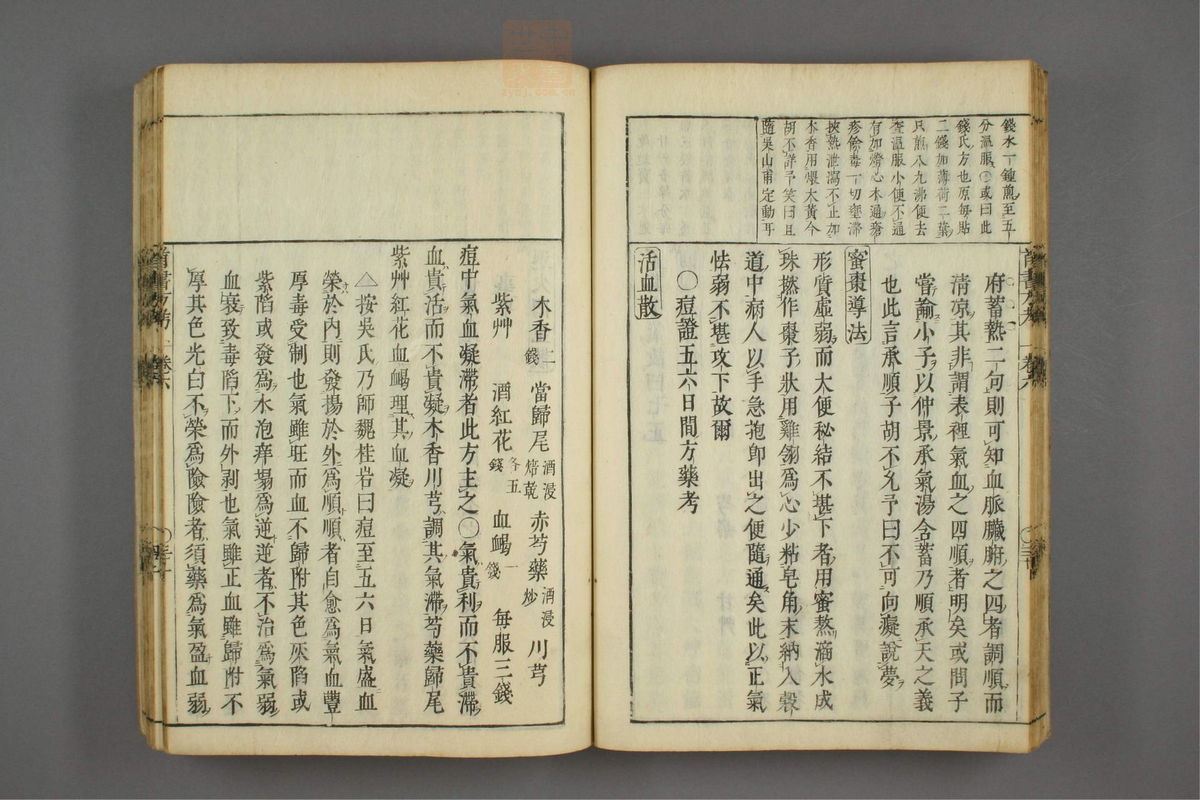 錢水一鍾煎至五
分溫服〇或曰此
錢氏方也原每貼
二錢加薄荷二葉
只煎八九沸便去
查溫服小便不通
有加燈心木通瘡
疹餘毒一切壅滯
挾熱泄瀉不止加
木香用煨大黃今
胡不詳予笑曰且
隨吳山甫定動耳
府蓄熱二句則可知血脈臟腑之四者調順而
清凉其非謂表裡氣血之四順者明矣或問子
嘗諭小子以仲景承氣湯含蓄乃順承天之義
也此言承順子胡不允予曰不可向癡說夢
蜜棗導法
形質虛弱而大便秘結不甚下者用蜜熬滴水成
珠撚作棗子狀用雞翎爲心少粘皂角末納入穀
道中病人以手急抱卽出之便隨通矣此以正氣
怯弱不堪攻下故爾
〇痘證五六日間方藥考
活血散
木香二錢 當歸尾酒浸焙乾 赤芍藥酒浸炒 川芎
紫艸 酒紅花各五錢 血蝎一錢 每服三錢
痘中氣血凝滯者此方主之〇氣貴利而不貴滯
血貴活而不貴凝木香川芎調其氣滯芍藥歸尾
紫艸紅花血蝎理其血凝
△按吳氏乃師魏桂岩曰痘至五六日氣盛血
榮於內則發揚於外爲順順者自愈爲氣血豐
厚毒受制也氣雖旺而血不歸附其色灰陷或
紫陷或發爲水泡痒塌爲逆逆者不治爲氣弱
血衰致毒陷下而外剥也氣雖正血雖歸附不
厚其色光白不榮爲險險者須藥爲氣盈血弱